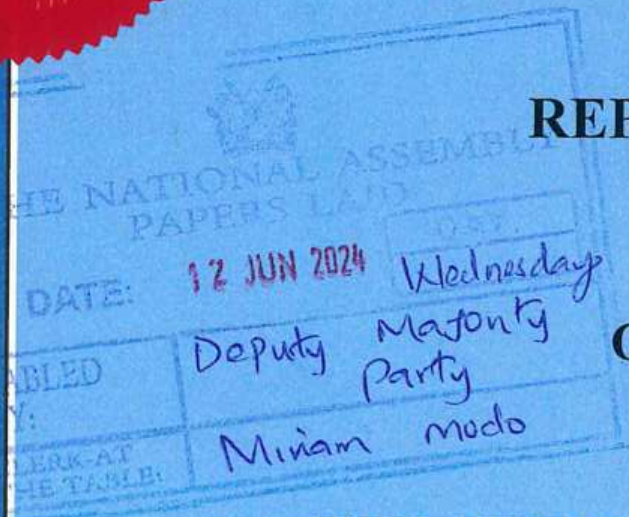 REP
THE NATIONAL ASSEMBLY
PAPERS LAID
DATE: 12 JUN 2024 DAY.
Wednesday
TABLED
BY:
Deputy Majority
Party
CLERK-AT
THE TABLE:
Miriam Modo